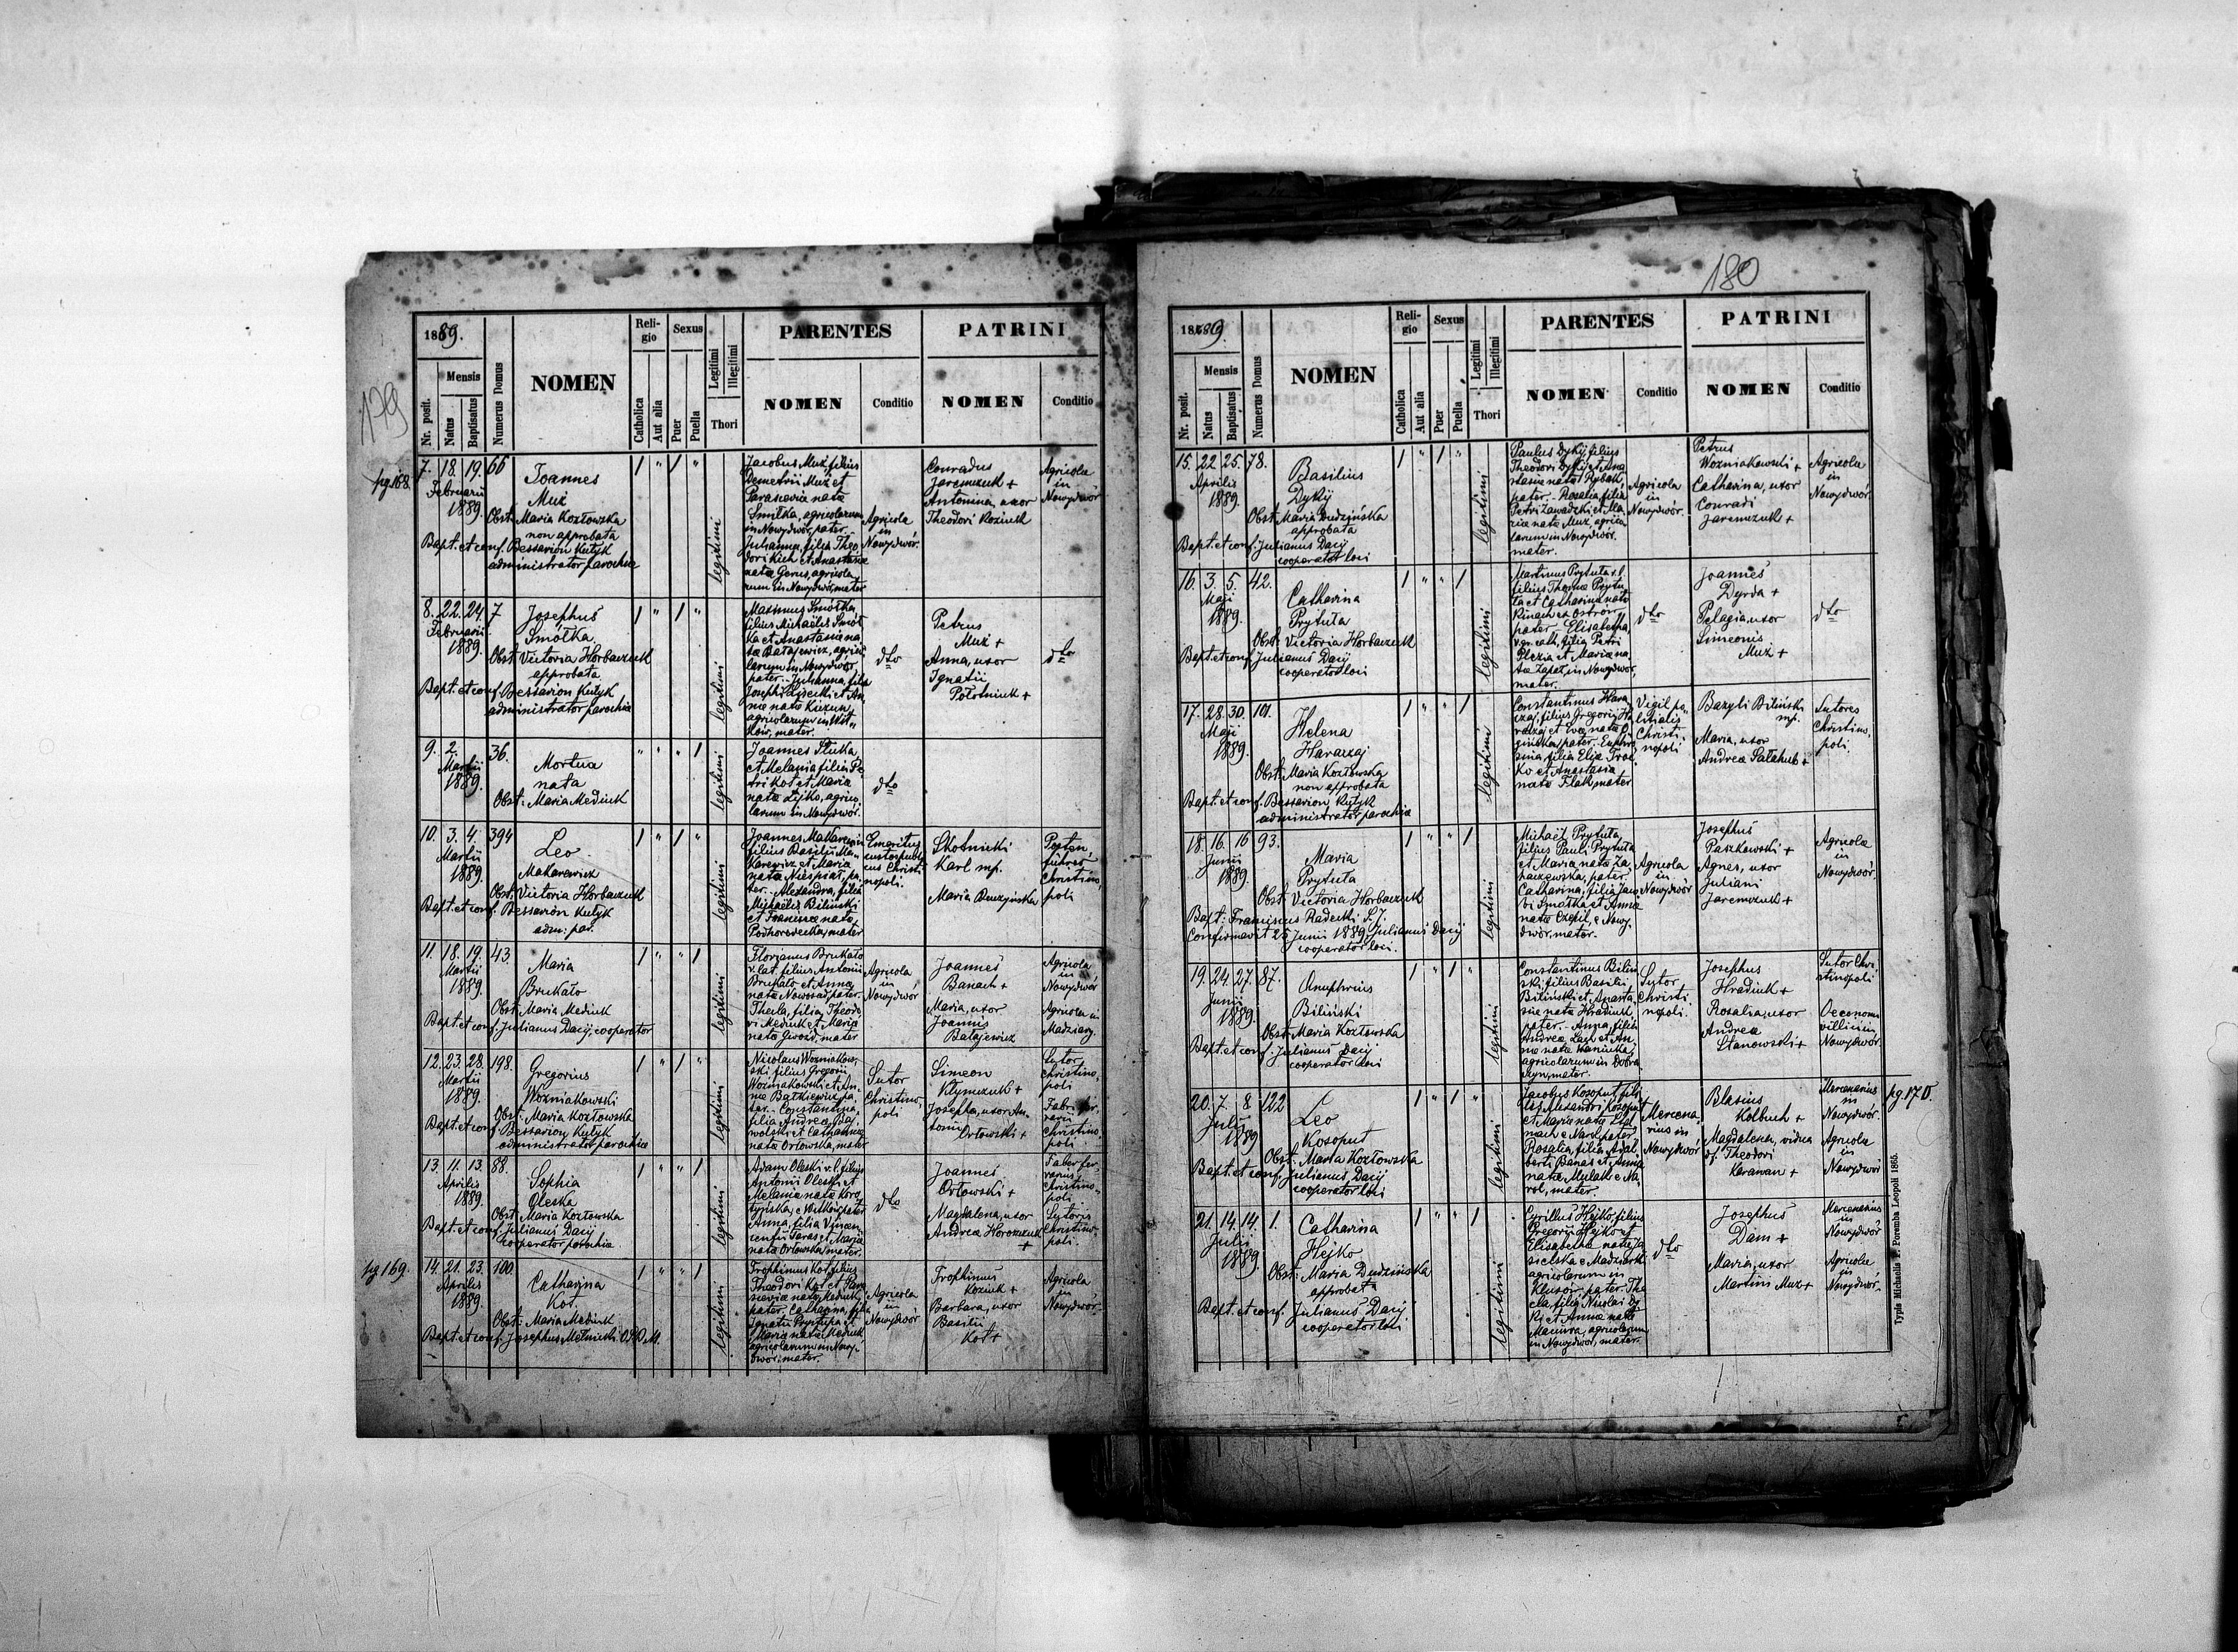 179
1889.
Mensis
Nr. posit.
Natus
Baptisatus
Numerus Domus
NOMEN
Reli-
gio
Catholica
Aut alia
Sexus
Puer
Puella
Legitimi
Illegitimi
Thori
PARENTES
NOMEN
Conditio
PATRINI
NOMEN
Conditio
pg 168.
7. 18. 19. 66
Februarii
1889.
Joannes
Muż
Obst. Maria Kozłowska
non approbata
Bapt. et conf. Bessarion Kutyk
administrator parochiæ
legitimi
Jacobus Muż, filius
Demetrii Muż et
Parascevia nata
Smitka, agricolarum
in Nowydwór, pater.
Julianna, filia Theo-
dori Kich et Anastasiæ
natæ Gerus, agricola-
rum in Nowydwór, mater
Agricola
in
Nowydwór.
Conradus
Jaremczuk +
Antonina, uxor
Theodori Koziuk
Agricola
in
Nowydwór
8. 22. 24. 7
Februarii
1889.
Josephus
Smółka
Obst. Victoria Horbaczuk
approbata
Bapt. et conf. Bessarion Kutyk
administrator parochiæ
legitimi
Maximus Smółka
filius Michaëlis Smół-
ka et Anastasia na-
ta Batajewicz, agrico-
larum in Nowydwór
pater. Julianna, filia
agricolarum in
mater.
dto
Petrus
Muż +
Anna, uxor
Ignatii
Połotniuk +
dto
9. 2. 36.
Martii
1889.
Mortua
nata
Obst: Maria Mediuk
legitimi
Joannes Stuka
et Melania filia Pe-
tri Kot et Maria
nata Lejko, agrico-
larum in Nowydwór.
dto
10. 3. 4. 394
Martii
1889.
Leo
Makarewicz
Obst: Victoria Horbaczuk
Bapt. et conf. Bessarion Kutyk
adm: par.
legitimi
Joannes Makarewicz
filius Basilii Ma-
karewicz et Maria
nata Niespiał, pa-
ter. Alexandra, filia
Michaëlis Biliński
et Franciscæ natæ
Podhorodecka, mater
Emeritus
Christi-
nopoli.
Skotnicki
Karl mp.
Maria
Posten-
führer
Christino-
poli
11. 18. 19. 43.
Martii
1889.
Maria
Brukało
Obst: Maria Mediuk
Bapt. et conf. Julianus Dacij, cooperator
legitimi
Florianus Brukało
r. lat. filius Antonii
Brukało et Anna
nata Nowosad, pater.
Thecla, filia Theodo-
ri Mediuk et Maria
nata Gwozd, mater
Agricola
in
Nowydwór
Joannes
Banach +
Maria, uxor
Joannis
Batajewicz
Agricola
in
Nowydwór
Agricola in
Madziary.
12. 23. 28. 198.
Martii
1889.
Gregorius
Woźniakowski
Obst: Maria Kozłowska
Bapt. et conf. Bessarion Kutyk
administrator parochiæ
legitimi
Nicolaus Woźniakow-
ski filius Gregorii
Woźniakowski et An-
næ Bątkiewicz, pa-
ter. Constantina,
filia Andreæ
et Catharinæ
nata Orłowska, mater
Sutor
Christino-
poli
Simeon
Klymczuk +
Josepha, uxor An-
tonii
Orłowski +
Sutor
Christino-
poli
Faber fer-
rarii
Christino-
poli
13. 11. 13. 88.
Aprilis
1889.
Sophia
Oleska
Obst: Maria Kozłowska
Bapt. et conf. Julianus Dacij
cooperator parochiæ
legitimi
Adam Oleski r. l. filius
Antonii Oleski et
Melania nata Koro-
tyńska, pater
Anna, filia Vincen-
centii Taras et Maria
nata Orłowska, mater.
dto
Joannes
Orłowski +
Magdalena, uxor
Andreæ Horoszczuk
+
Faber fer-
rarius
Christino-
poli
Sutoris
Christino-
poli.
pg 169.
14. 21. 23. 100.
Aprilis
1889.
Catharina
Kot.
Obst: Maria Mediuk
Bapt. et conf. Josephus Melnicki
legitimi
Trophimus Kot, filius
Theodori Kot et Para-
scevia nata Mediuk,
pater. Catharina, filia
Ignatii Prystupa et
Maria nata Mediuk
agricolarum in Nowy-
dwór, mater.
Agricola
in
Nowydwór
Trophimus
Koziuk +
Barbara, uxor
Basilii
Kot +
Agricola
in
Nowydwór
180
1889.
Mensis
Nr. posit.
Natus
Baptisatus
Numerus Domus
NOMEN
Reli-
gio
Catholica
Aut alia
Sexus
Puer
Puella
Legitimi
Illegitimi
Thori
PARENTES
NOMEN
Conditio
PATRINI
NOMEN
Conditio
15. 22. 25. 78.
Aprilis
1889.
Basilius
Dykij
Obst. Maria Dudzińska
approbata
Bapt. et conf. Julianus Dacij
cooperator loci
legitimi
Paulus Dykij, filius
Theodori Dykij et Ana-
stasiæ nata Rybak,
pater. Rosalia, filia
Petri Zawadzki et Ma-
riæ nata Muż, agrico-
larum in Nowydwór.
mater.
Agricola
in
Nowydwór.
Petrus
Woźniakowski +
Catharina, uxor
Conradi
Jaremczuk +
Agricola
in
Nowydwór
16. 3. 5. 42.
Maji
1889.
Catharina
Prytuła
Obst: Victoria Horbaczuk
Bapt. et conf. Julianus Dacij
cooperator loci
legitimi
Martinus Prytuła r. l.
filius Thomæ Prytu-
ła et Catharina nata
Kinach
pater. Elisabetha,
filia Petri
et Mariæ na-
tæ in Nowydwór,
mater.
dto
Joannes
Dyrda +
Pelagia, uxor
Simeonis
Muż +
dto
17. 28. 30. 101.
Maji
1889.
Helena
Harazaj
Obst: Maria Kozłowska
non approbata
Bapt. et conf. Bessarion Kutyk
administrator parochiæ
legitimi
Constantinus Hara-
zaj, filius Gregorii Ha-
razaj et Eva nata
pater. Euphro-
sina filia Eliæ
et Anastasia
nata Flak, mater
Vigil po-
litialis
Christi-
nopoli
Bazyli Biliński
mp.
Maria, uxor
Andreæ Sałahub +
Sutores
Christino-
poli.
18. 16. 16 93.
Junii
1889.
Maria
Prytuła
Obst: Victoria Horbaczuk
Bapt: Franciscus Radecki S. J.
Confirmavit 25 Junii 1889 Julianus Dacij
cooperator loci.
legitimi
Michaël Prytuła,
filius Pauli Prytuła
et Maria nata Za-
pater.
Catharina, filia Jaco-
bi Smółka et Anna
nata Czepil, e Nowy-
dwór, mater.
Agricola
in
Nowydwór
Josephus
Paszkowski +
Agnes, uxor
Juliani
Jaremczuk +
Agricola
in
Nowydwór.
19. 24. 27. 87.
Junii
1889.
Onuphrius
Biliński
Obst: Maria Kozłowska
Bapt. et conf. Julianus Dacij
cooperator loci
legitimi
Constantinus Biliń-
ski, filius Basilii
Biliński et Anasta-
siæ nata Hradiuk,
pater. Anna, filia
Andreæ Lach et An-
næ nata
agricolarum in Dobra-
czyn, mater.
Sutor
Christi-
nopoli.
Josephus
Hradiuk +
Rosalia, uxor
Andreæ
Stanowski +
Sutor Chri-
stinopoli
Oeconom
villicus
Nowydwór.
20. 7. 8 122
Julij
1889
Leo
Kosoput
Obst: Maria Kozłowska
Bapt. et conf. Julianus Dacij
cooperator loci
legitimi
Jacobus Kosoput, fili-
us Alexandri Kosoput
et Maria nata
pater.
Rosalia, filia Adal-
berti Banaś et Anna
nata Mulak e Na-
rol, mater.
Mercena-
rius in
Nowydwór
Blasius
Kolbuch +
Magdalena, vidua
Theodori
Karawan +
Mercenarius
in
Nowydwór.
Agricola
in
Nowydwór
pg. 170.
21. 14. 14. 1.
Julij
1889.
Catharina
Hejko
Obst: Maria Dudzińska
approbata
Bapt. et conf. Julianus Dacij
cooperator loci
legitimi
Cyrillus Hejko, filius
Gregorii Hejko et
Elisabetha nata Ja-
sielska e Madziarki
agricolarum in
Klusów, pater. The-
cla, filia Nicolai Dy-
ki et Anna nata
Macura, agricolarum
in Nowydwór, mater.
dto
Josephus
Dam +
Maria, uxor
Martini Muż +
Mercenarius
in
Nowydwór
Agricola
in
Nowydwór.
Typis Michaelis F. Poremba Leopoli 1865.